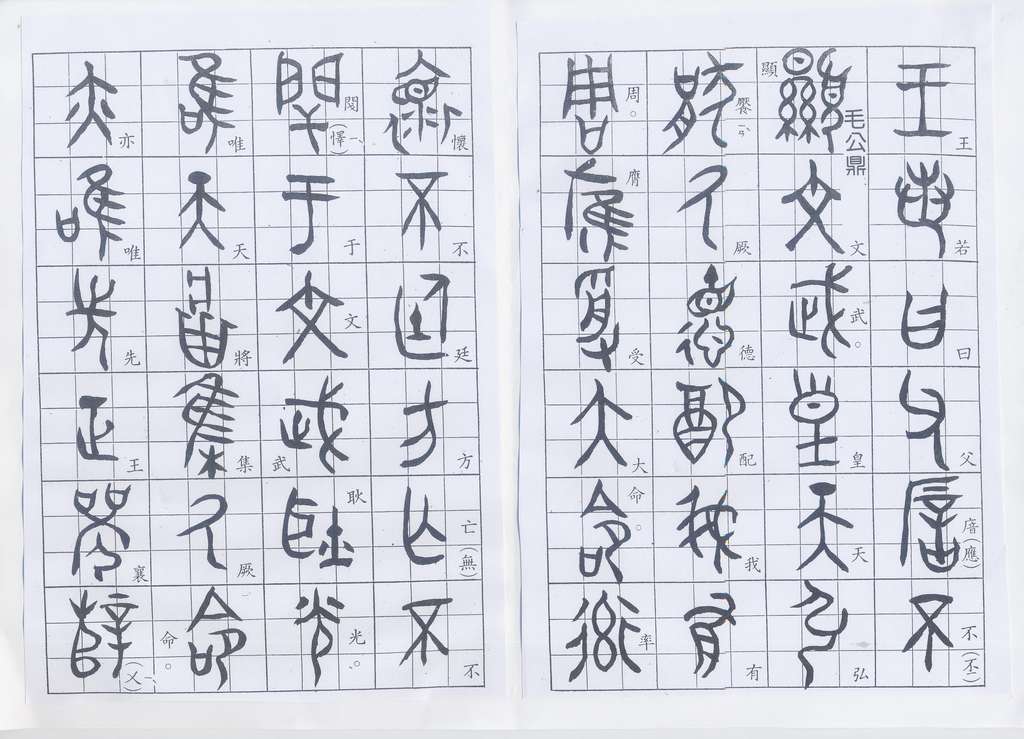 毛公鼎
王若曰父(應)不(丕)
顯文武。皇天弘
饜厥德配我有
周。膺受大命。率
懷不廷方亡(無)不
閱(懌)于文武耿光。
唯天將集厥命。
亦唯先王襄(乂)